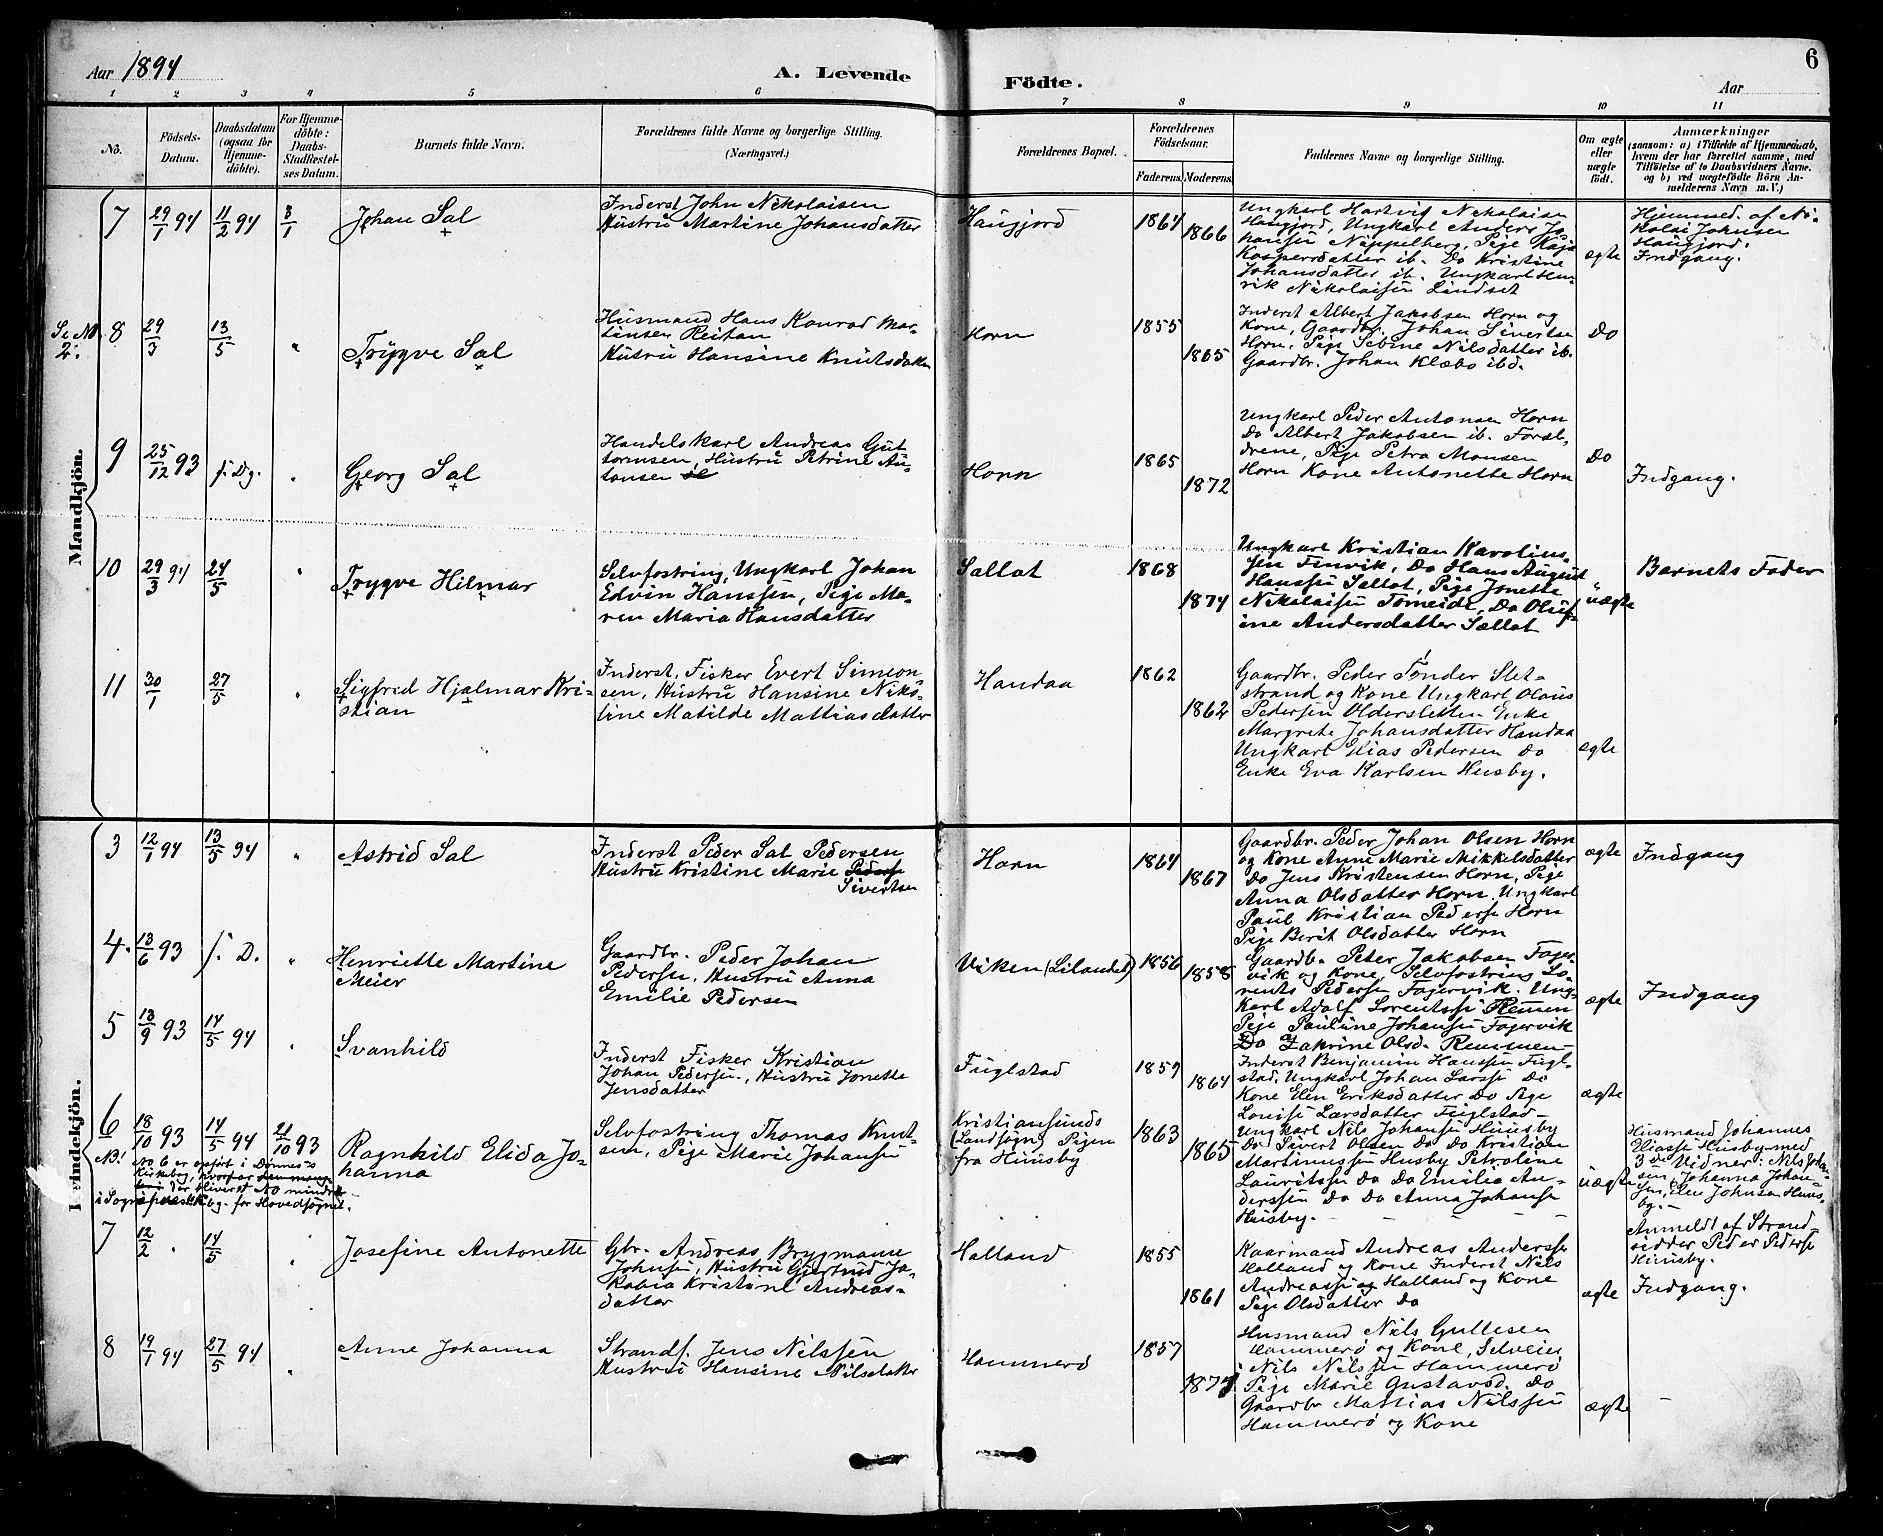 Aar 1894
A. Levende
Födte.
Aar
6
1 2 3 4 5 6 7 8 9 10 11
No.
Födsels-
Datum.
Daabsdatum
(ogsaa for
Hjemme-
döbte).
For Hjemme-
döbte:
Daabs-
Stadfæstel-
ses Datum.
Barnets fulde Navn.
Forældrenes fulde Navne og borgerlige Stilling.
(Næringsvei.)
Forældrenes Bopæl.
Forældrenes
Födselsaar.
Faderens. Moderens.
Faddernes Navne og borgerlige Stilling.
Om ægte
eller
uægte
födt.
Anmærkninger
(saasom: a) i Tilfælde af Hjemmedaab,
hvem der har forrettet samme, med
Tilföielse af to Daabsvidners Navne.
og b) ved uægtefödte Börn An-
melderens Navn m. V.)
Mandkjön.
7 29/1 94 11/2 94 3/1 Johan Sal
Inderst John Nikolaisen
Hustru Martine Johansdatter
Haugjord 1864 1866
Ungkarl Hartvig Nikolaisen
Haugjord, Ungkarl Anders Jo-
hansen Nippelberg, Pige Kaja
Kaspersdatter ib. Do Kristine
Johansdatter ib. Ungkarl Hen-
rik Nikolaisen Lindset
ægte
Hjemmed. af Ni-
kolai Johnsen
Haugjord.
Indgang.
Se No
2.
8 29/3 13/5 " Trygve Sal
Husmand Hans Konrad Mar-
tinsen Reitan
Hustru Hansine Knutsdatter
Horn 1855 1865
Inderst Albert Jakobsen Horn og
Kone, Gaardbr. Johan Sivertse
Horn, Pige Sebine Nilsdatter ib.
Gaardbr. Johan Klæbo ibd.
Do
9 25/12 93 s. Dg. " Georg Sal
Handelskarl Andreas Gut-
tormsen, Hustru Petrine An-
tonsen
Horn 1865 1872
Ungkarl Peder Antonsen Horn
Do Albert Jakobsen ib. Foræl-
drene, Pige Petra Monsen
Horn Kone Antonette Horn
Do
Indgang.
10 29/3 94 24/5 " Trygve Hilmar
Selvfostring, Ungkarl Johan
Edvin Hanssen, Pige Ma-
ren Maria Hansdatter
Sallat 1868 1874
Ungkarl Kristian Karolius-
sen Finvik, Do Hans August
Hanssen Sallat, Pige Jonette
Nikolaisen Tømeide, Do Oluf-
ine Andersdatter Sallat
uægte
Barnets Fader
11 30/1 27/5 " Sigfred Hjalmar Kri-
stian
Inderst, Fisker Evert Simeon-
sen, Hustru Hansine Niko-
line Matilde Mattiasdatter
Handaa 1862 1862
Gaardbr. Peder Tønder Slet-
strand og Kone Ungkarl Olaus
Pedersen Oldersletten Enke
Margrete Johansdatter Handaa
Ungkarl Elias Pedersen Do
Enke Eva Karlsen Husby.
ægte
Kvindekjön.
3 12/1 94 13/5 94 " Astrid Sal
Inderst Peder Sal Pedersen
Hustru Kristine Marie Pederse
Sivertsen
Horn 1864 1867
Gaardbr. Peder Johan Olsen Horn
og Kone Anne Marie Mikkelsdatter
Do Jens Kristensen Horn, Pige
Anna Olsdatter Horn, Ungkarl
Paul Kristian Pederse Horn
Pige Berit Olsdatter Horn
ægte
Indgang
4. 13/6 93 s. D. " Henriette Martine
Meier
Gaardbr. Peder Johan
Pedersen, Hustru Anna
Emilie Pedersen
Viken (Lilandet) 1856 1858
Gaardb. Peter Jakobsen Fager-
vik og Kone, Selvfostring Lo-
rents Pederse Fagervik. Ung-
karl Adolf Lorentsse Remmen
Pige Pauline Johanse Fagervik
Do Zakrine Olsd. Remmen
ægte
Indgang
5 13/9 93 14/5 94 " Svanhild
Inderst Fisker Kristian
Johan Pedersen, Hustru Jonette
Jensdatter
Fuglstad 1859 1864
Inderst Benjamin Hanssen Fugl-
stad, Ungkarl Johan Larsse Do
Kone Elen Eriksdatter Do Pige
Louise Larsdatter Fuglstad
ægte
6 18/10 93 14/5 94 21/10 93 Ragnhild Elida Jo-
hanna
Selvfostring Thomas Knut-
sen, Pige Marie Johansen
Kristiansunds
(Landsogn) Pigen
fra Husby
1863 1865
Ungkarl Nils Johansen Husby
Do Sivert Olsen Do Do Kristian
Martinussen Husby Petroline
Lauritssen Do Do Emilie An-
derssen Do Do Anna Johanse
Husby.
uægte
Husmand Johannes
Eliasse Husby med
3de Vidner: Nils Johan-
sen, Johanna Johan-
sen, Elen Johnsen Hus-
by.
Anmeldt af Strand-
sidder Peder Pederse
Husby.
NB! No 6 er opført i Dønnes's
Kirkebog, hvorfor
der bliveret No mindre
i Sognepræstkbg. for Hovedsognet.
7 12/2 " 14/5 " Josefine Antonette
Gbr. Andreas Brygmann
Johnsen, Hustru Gjertrud Ja-
kobia Kristine Andreas-
datter
Halland 1855 1861
Kaarmand Andreas Anderse
Holland og Kone Inderst Nils
Andreassen Halland og Kone
Pige Olsdatter Do
ægte
Indgang.
8 19/1 94 27/5 94 " Anne Johanna
Strands. Jens Nilssen
Hustru Hansine Nilsdatter
Hammerø 1857 1874
Husmand Nils Gullesen
Hammerø og Kone, Selveier
Nils Nilssen Hammerø
Pige Marie Gustavsd. Do
Gaardbr Mattias Nilssen
Hammerø og Kone
ægte